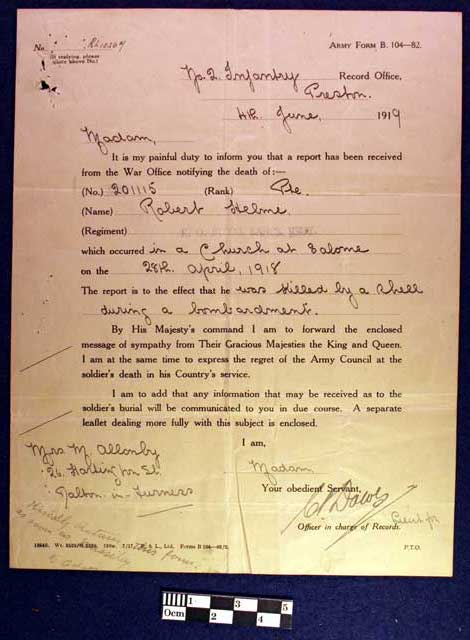 No. RL12567
ARMY FORM B. 104—82.
(If replying, please
quote above No.)
No. 2. Infantry Record Office,
Preston.
4th. June, 1919
Madam,
It is my painful duty to inform you that a report has been received
from the War Office notifying the death of:—
(No.) 201115 (Rank) Pte.
(Name) Robert Helme.
(Regiment)
which occurred in a Church at Salome
on the 28th. April, 1918
The report is to the effect that he was Killed by a shell
during a bombardment.
By His Majesty's command I am to forward the enclosed
message of sympathy from Their Gracious Majesties the King and Queen.
I am at the same time to express the regret of the Army Council at the
soldier's death in his Country's service.
I am to add that any information that may be received as to the
soldier's burial will be communicated to you in due course. A separate
leaflet dealing more fully with this subject is enclosed.
I am,
Mrs M. Allonby
Madam
26. St.
Your obedient Servant,
Dalton-in-Furness
Officer in charge of Records.
Kindly return this form,
as soon as
P.T.O.
Forms B 104—82/2.
0cm 1 2 3 4 5